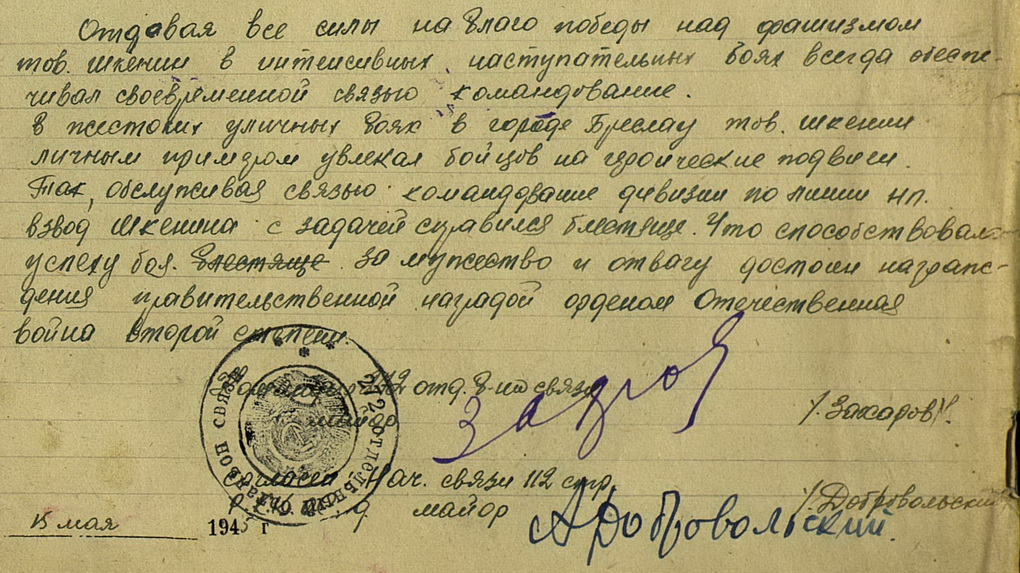 Отдавая все силы на благо победы над фашизмом
тов. Шкенин в интенсивных наступательных боях всегда обеспе-
чивал своевременной связью командование.
В жестоких уличных боях в городе Бреслау тов. Шкенин
личным примером увлекал бойцов на героические подвиги.
Так, обслуживая связью командование дивизии по линии НП.
взвод Шкенина с задачей справился блестяще. Что способствовало
успеху боя. блестяще За мужество и отвагу достоин награж-
дения правительственной наградой орденом Отечественная
война второй степени.
212 отд. б-на связи
майор
/.Захаров/.
Согласен Нач. связи 112 стр.
майор
/.Добровольский
АДобровольский.
15 мая 1945 г
212 ОТДЕЛЬНЫЙ СВЯЗИ